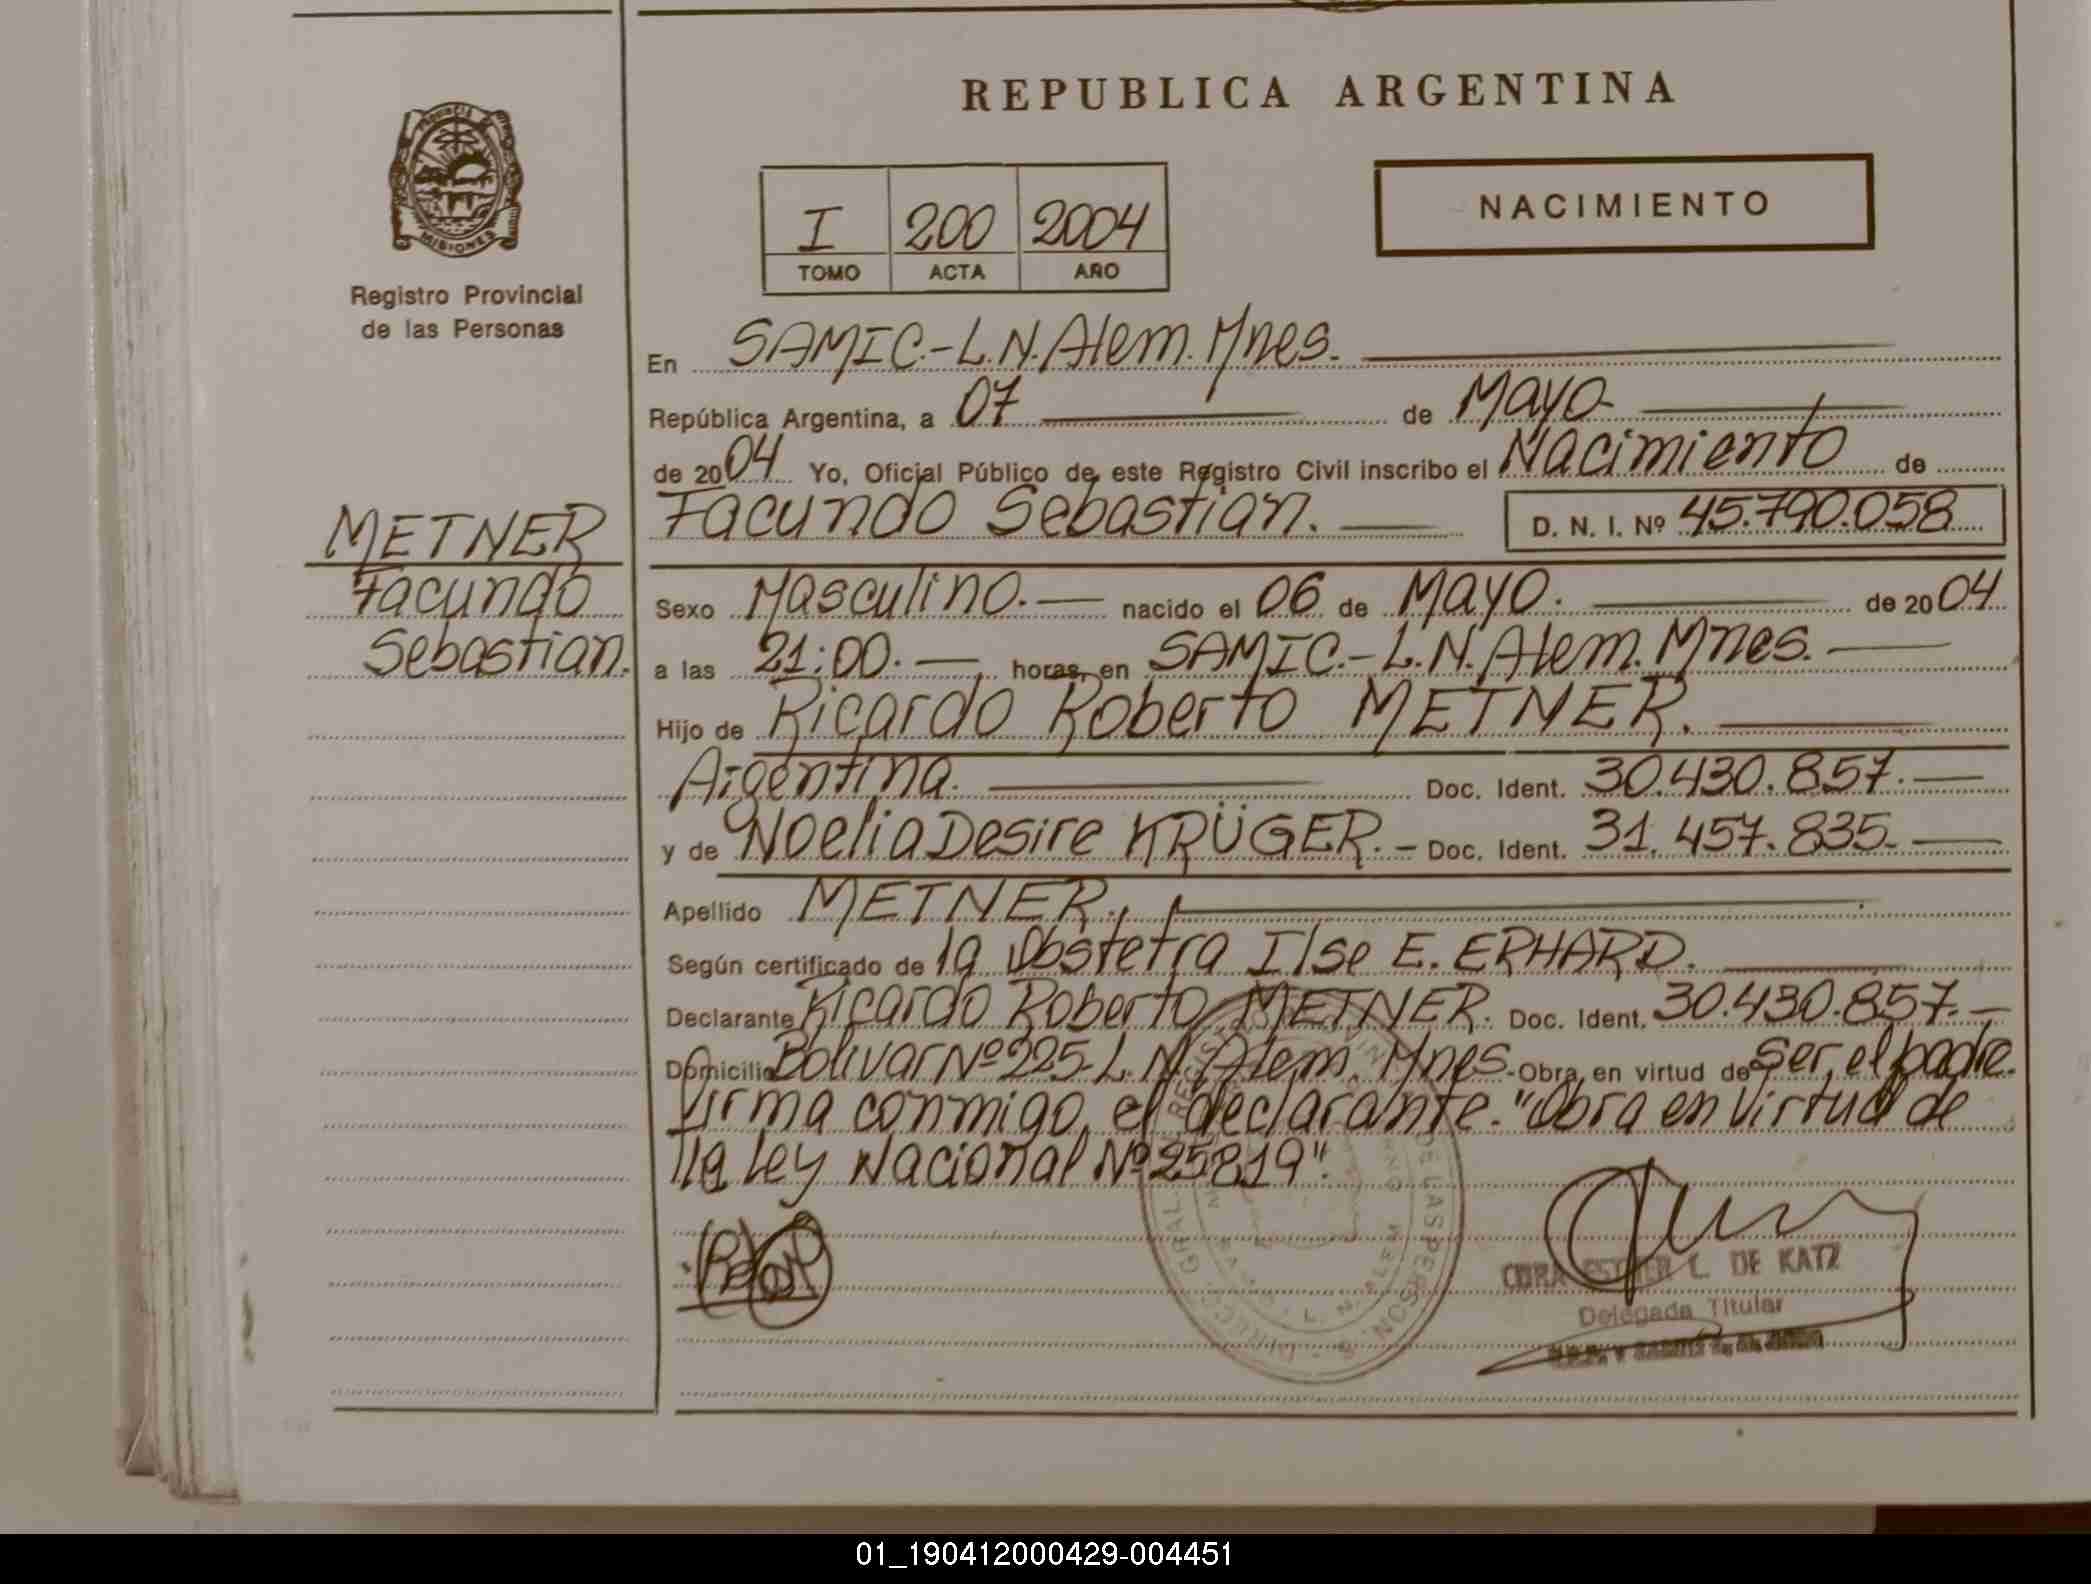 REPUBLICA ARGENTINA
PROVINCIA
MISIONES
Registro Provincial
de las Personas
I 200 2004
TOMO ACTA AÑO
NACIMIENTO
En SAMIC.-L.N.Alem.Mnes.
República Argentina, a 07 de Mayo
de 2004 Yo, Oficial Público de este Registro Civil inscribo el Nacimiento de
Facundo Sebastian. D. N. I. Nº 45.790.058
METNER
Facundo
Sebastian.
Sexo Masculino.- nacido el 06 de Mayo. de 2004
a las 21:00.- horas, en SAMIC.-L.N.Alem.Mnes.
Hijo de Ricardo Roberto METNER.
Argentina. Doc. Ident. 30.430.857.-
y de Noelia Desire KRÜGER.- Doc. Ident. 31.457.835.-
Apellido METNER.
Según certificado de la Obstetra Ilse E. ERHARD.
Declarante Ricardo Roberto METNER. Doc. Ident. 30.430.857.-
Domicilio Bolivar Nº 225-L.N.Alem. Mnes. Obra en virtud de ser el padre.
Firma conmigo el declarante. "Obra en Virtud de
la Ley Nacional Nº 25819".
ESTHER L. DE KATZ
Delegada Titular
01_190412000429-004451